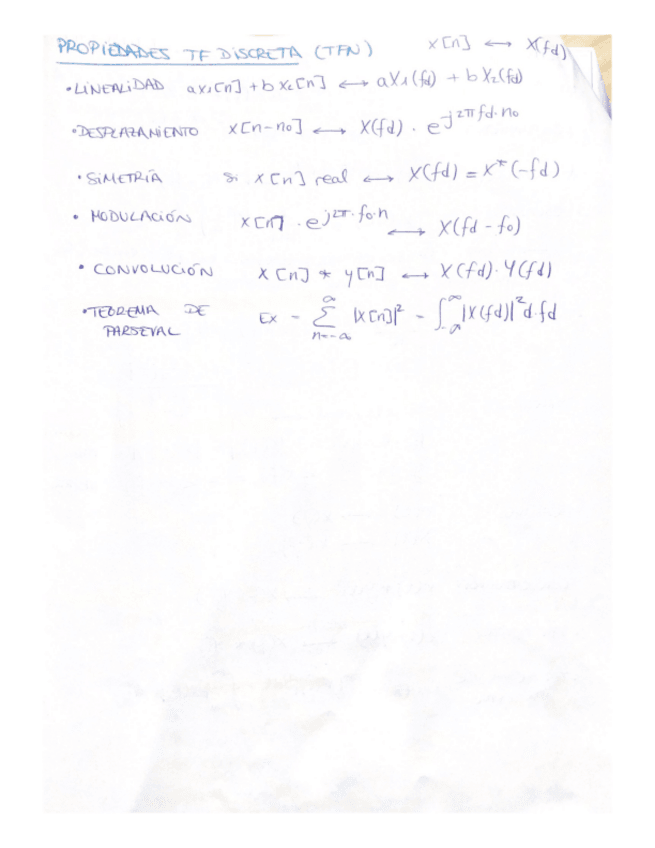 PROPIEDADES TF DISCRETA (TFN) x[n] ⟷ X(fd)
• LINEALIDAD ax₁[n] + bx₂[n] ⟷ aX₁(fd) + bX₂(fd)
• DESPLAZAMIENTO x[n-n₀] ⟷ X(fd) · e^{j2πfd·n₀}
• SIMETRÍA Si x[n] real ⟷ X(fd) = X*(-fd)
• MODULACIÓN x[n] · e^{j2π·f₀·n} ⟷ X(fd - f₀)
• CONVOLUCIÓN x[n] * y[n] ⟷ X(fd) · Y(fd)
• TEOREMA DE PARSEVAL Ex = ∑_{n=-∞}^{∞} |x[n]|² = ∫_{-∞}^{∞} |X(fd)|² d·fd